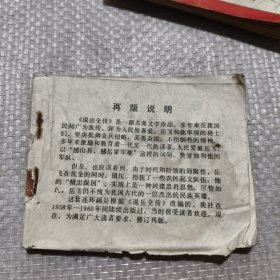 再版说明
《说岳全传》是一部古典文学作品，多年来在我国
民间广为流传，深为人民所喜爱。岳飞和他率领的将士
们，坚决抵御金兵侵略，英勇奋战，不怕牺牲的精神，
多年来激励和教育着一代又一代的读者。人民爱戴岳飞，
以“撼山易，撼岳家军难”这样的词句，赞誉他和他的
军队。
但是，也应该看到，由于时代和阶级的局限性，岳
飞在抗金的同时，镇压、招抚了一些农民起义队伍，他
的“精忠报国”，实质上是一种封建忠君思想。尽管如
此，岳飞仍不愧为我国古代的一位杰出的民族英雄。
这套连环画是根据《说岳全传》改编的，我社在
1958年—1960年间陆续出版过，当时很受读者欢迎。现
在，为满足广大读者要求，修订再版。